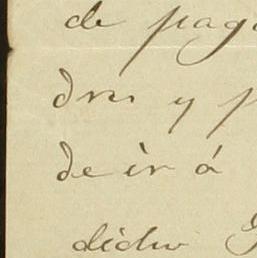 de pag
dres y p
de ir á
dicho